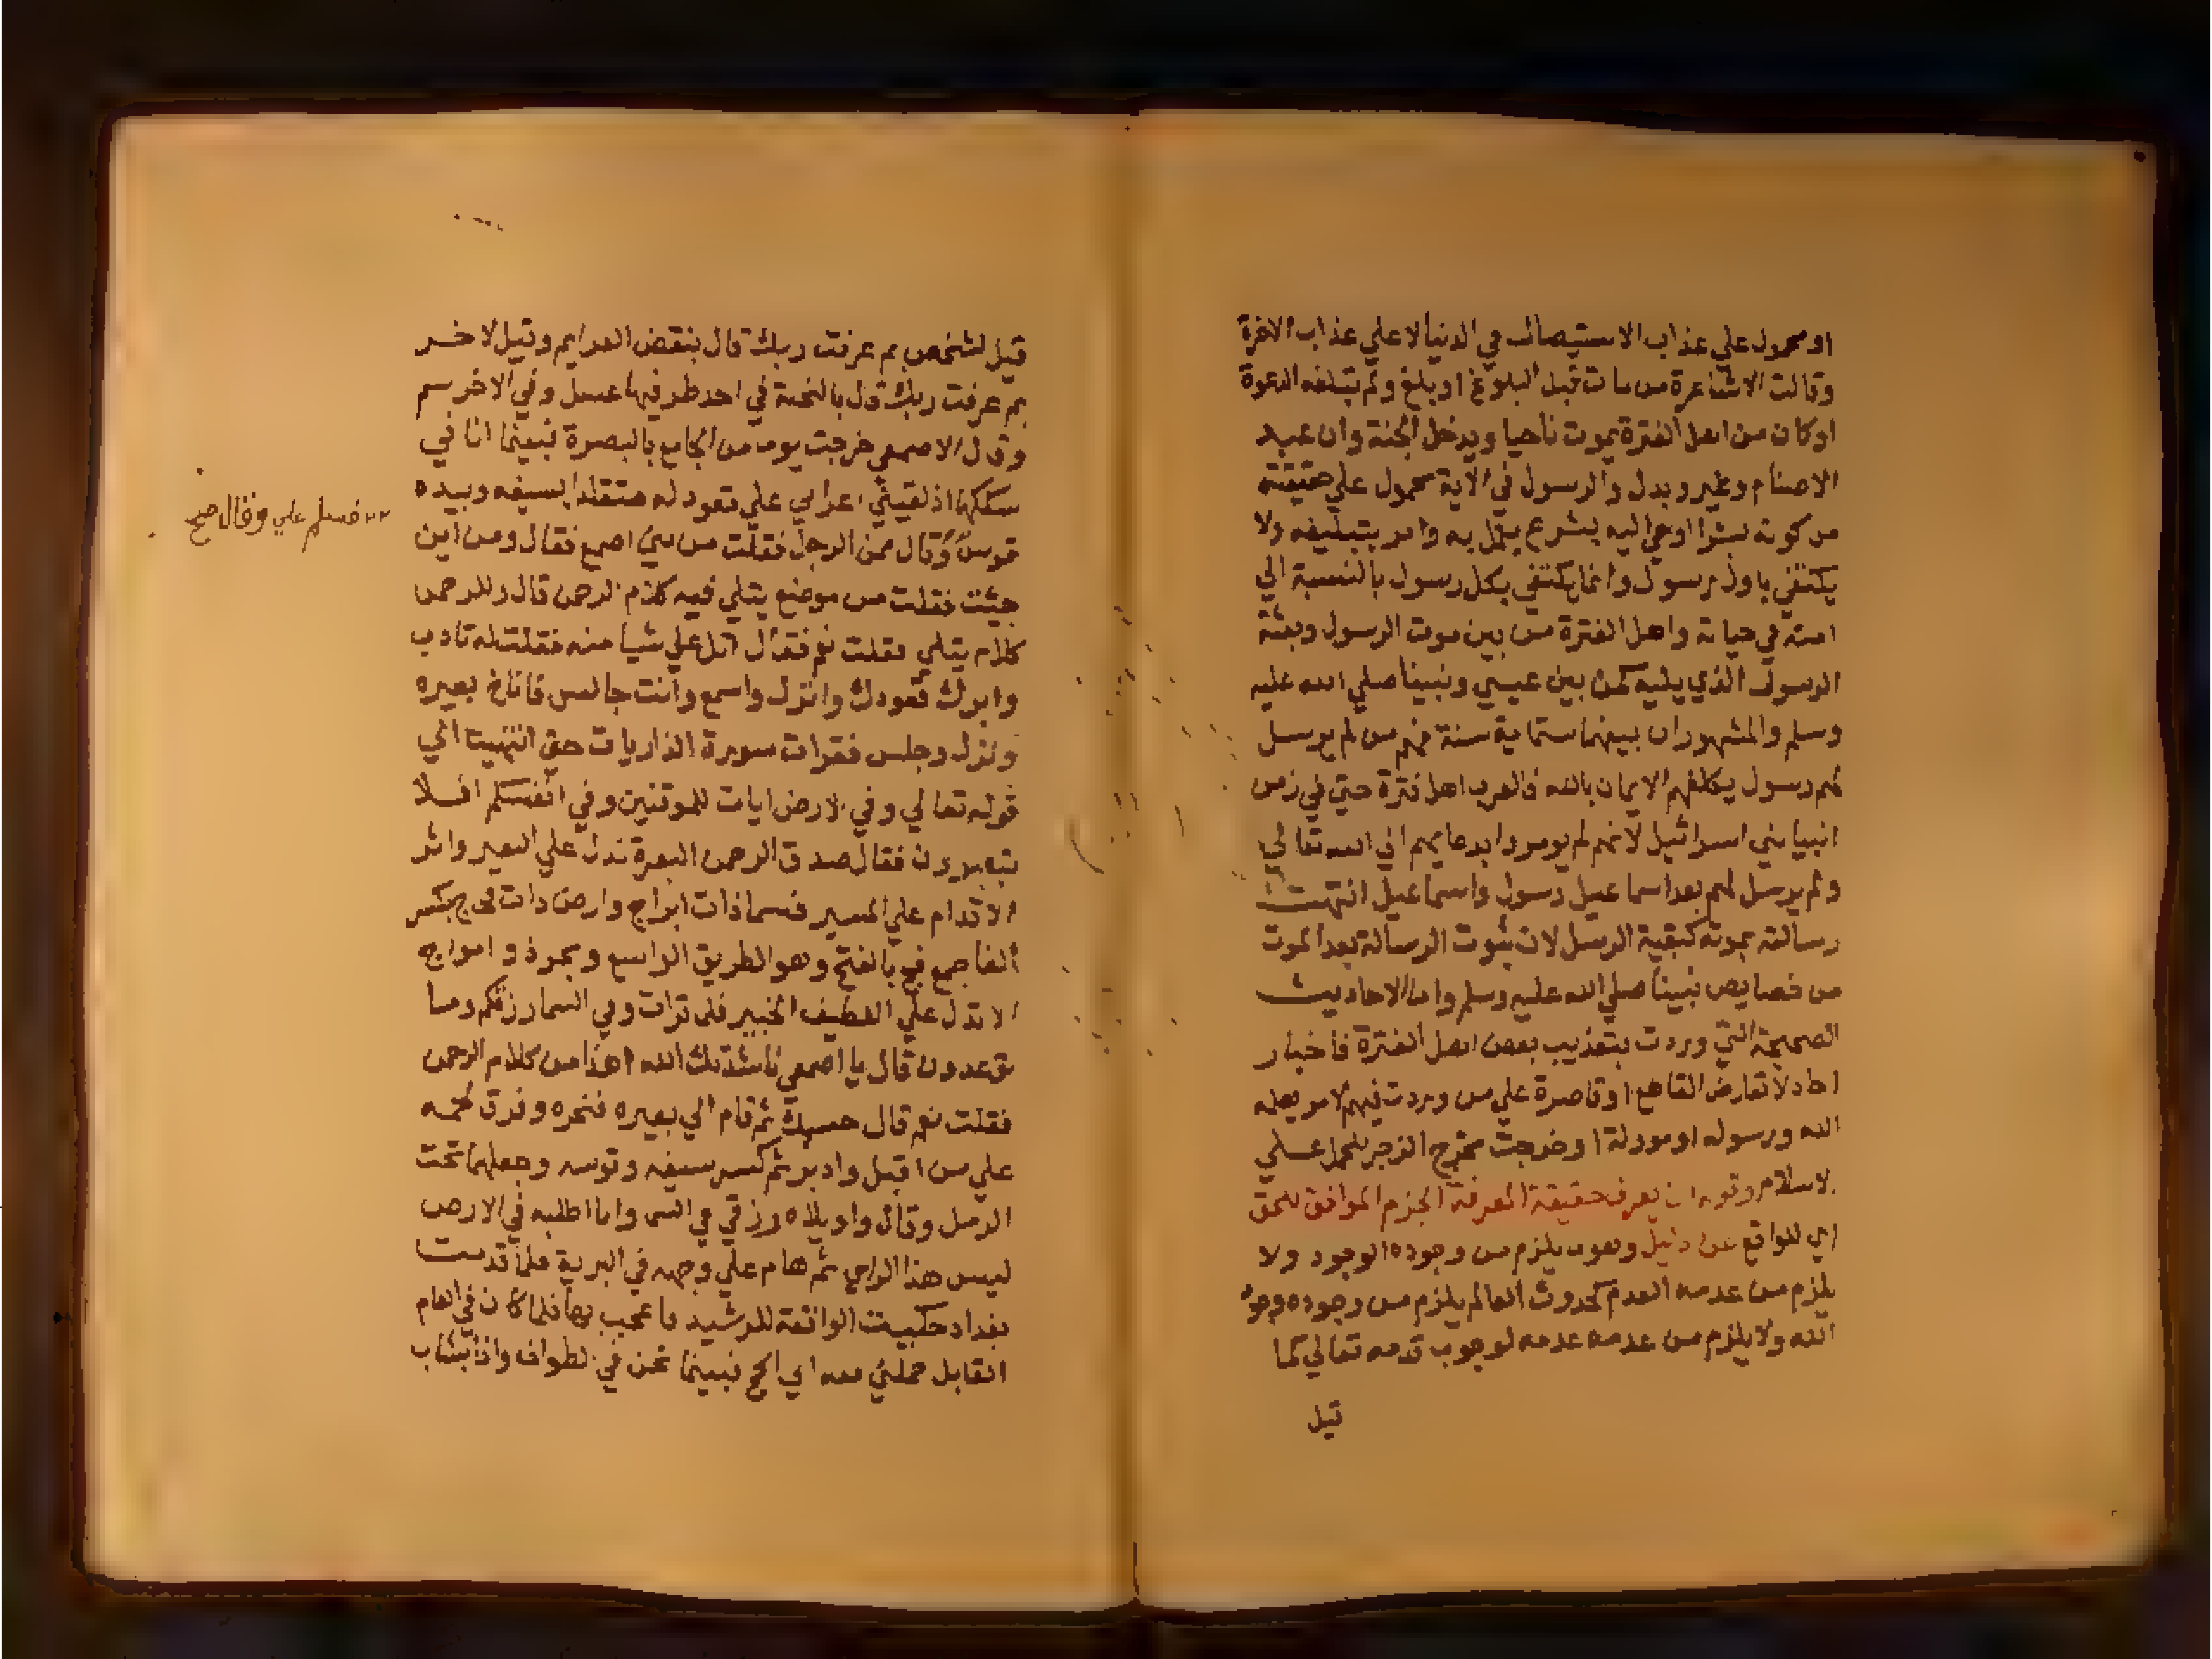 او محمول علي عذاب الاستيصال في الدنيا لا علي عذاب الاخرة
وقالت الاشاعرة من مات قبل البلوغ او بلغ ولم تبلغه الدعوة
او كان من اهل الفترة يموت ناجيا ويدخل الجنة وان عبد
الاصنام وغير وبدل والرسول في الاية محمول علي حقيقته
من كونه بشرا اوحي اليه بشرع يعمل به وامر بتبليغه ولا
يكتفي باول رسول وانما يكتفي بكل رسول بالنسبة الي
امته في حياته واهل الفترة من بين موت الرسول وبعثة
الرسول الذي يليه كمن بين عيسي ونبينا صلي الله عليه
وسلم والمشهور ان بينهما ستماية سنة فهم من لم يرسل
لهم رسول يكلفهم الايمان بالله فالعرب اهل فترة حتي في زمن
انبيا بني اسرائيل لانهم لم يومروا بدعايهم الي الله تعالي
ولم يرسل لهم بعد اسماعيل رسول واسماعيل انتهت
رسالته بموته كبقية الرسل لان ثبوت الرسالة بعد الموت
من خصايص نبينا صلي الله عليه وسلم واما الاحاديث
الصحيحة التي وردت بتعذيب بعض اهل الفترة فاخبار
احاد لا تعارض القاطع او قاصرة علي من وردت فيهم لامر يعلمه
الله ورسوله او مودلة او خرجت مخرج الزجر للحمل علي
الاسلام وقوله ان يعرف حقيقة المعرفة الجزم الموافق للحق
اي للواقع عن دليل وهو ما يلزم من وجوده الوجود ولا
يلزم من عدمه العدم كحدوث العالم يلزم من وجوده وجود
الله ولا يلزم من عدمه عدمه لوجوب قدمه تعالي كما
قيل
قيل لشخص بم عرفت ربك قال بنقض العزايم وقيل لاخر
بم عرفت ربك قال بالنحلة في احد طرفيها عسل وفي الاخر سم
وقال الاصمعي خرجت يوما من الجامع بالبصرة فبينما انا في
سككها اذ لقيني اعرابي علي قعود له متقلدا بسيفه وبيده
قوس وقال ممن الرجل فقلت من بني اصمع فقال ومن اين
فسلم علي وقال صح
جيئت فقلت من موضع يتلي فيه كلام الرحمن قال وللرحمن
كلام يتلي فقلت نعم فقال اتل علي شيا منه فقلت له تادب
وابرك قعودك وانزل واسمع وانت جالس فاناخ بعيره
ونزل وجلس فقرات سورة الذاريات حتي انتهيت الي
قوله تعالي وفي الارض ايات للموقنين وفي انفسكم افلا
تبصرون فقال صدق الرحمن البعرة تدل علي البعير واثر
الاقدام علي المسير فسما ذات ابراج وارض ذات فجاج بكسر
الفا جمع فج بالفتح وهو الطريق الواسع وبحر ذو امواج
الا تدل علي اللطيف الخبير فلما قرات وفي السما رزقكم وما
توعدون قال يا اصمعي ناشدتك الله اهذا من كلام الرحمن
فقلت نعم قال حسبك ثم قام الي بعيره فنحره وفرق لحمه
علي من اقبل وادبر ثم كسر سيفه وقوسه وجعلهما تحت
الرمل وقال واويلاه رزقي في السما وانا اطلبه في الارض
ليس هذا الراي ثم هام علي وجهه في البرية فلما قدمت
بغداد حكيت الواقعة للرشيد فاعجب بها فلما كان في العام
القابل حملني معه الي الحج فبينما نحن في الطواف واذا بشاب